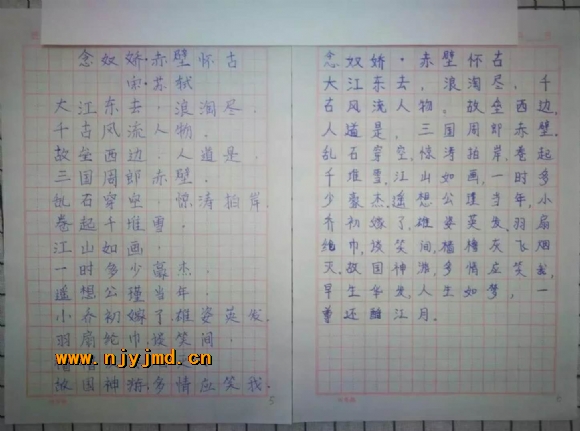 念奴娇·赤壁怀古
宋·苏轼
大江东去,浪淘尽,
千古风流人物。
故垒西边,人道是,
三国周郎赤壁。
乱石穿空,惊涛拍岸,
卷起千堆雪。
江山如画,
一时多少豪杰。
遥想公瑾当年,
小乔初嫁了,雄姿英发。
羽扇纶巾,谈笑间,
www.njyjmd.cn
故国神游,多情应笑我,
5
念奴娇·赤壁怀古
大江东去,浪淘尽,千
古风流人物。故垒西边,
人道是,三国周郎赤壁。
乱石穿空,惊涛拍岸,卷起
千堆雪,江山如画,一时多
少豪杰.遥想公瑾当年,小
乔初嫁了,雄姿英发,羽扇
纶巾,谈笑间,樯橹灰飞烟
灭,故国神游,多情应笑我,
早生华发,人生如梦,一
尊还酹江月。